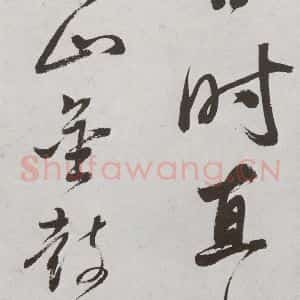 时直
山金鼓
Shufawang.CN